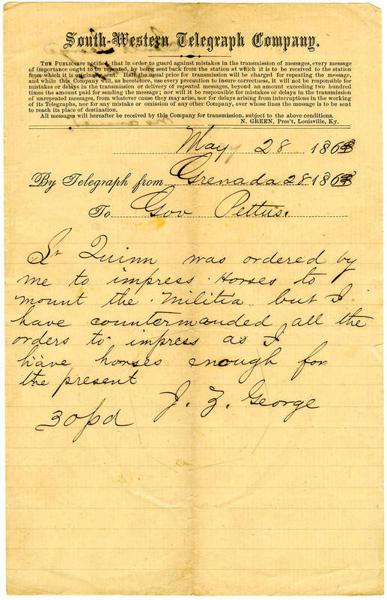 South-Western Telegraph Company.
THE PUBLIC are notified, that in order to guard against mistakes in the transmission of messages, every message
of importance ought to be repeated, by being sent back from the station at which it is to be received to the station
from which it is sent. Half the usual price for transmission will be charged for repeating the message,
and while this Company will, as heretofore, use every precaution to insure correctness, it will not be responsible for
mistakes or delays in the transmission or delivery of repeated messages, beyond an amount exceeding two hundred
times the amount paid for sending the message; nor will it be responsible for mistakes or delays in the transmission
of unrepeated messages, from whatever cause they may arise, nor for delays arising from interruptions in the working
of its Telegraphs, nor for any mistake or omission of any other Company, over whose lines the message is to be sent
to reach its place of destination.
All messages will hereafter be received by this Company for transmission, subject to the above conditions.
N. GREEN, Pres't, Louisville, Ky.
May 28 1863
By Telegraph from Grenada 28 1863
To Gov Pettus.
Lt Quinn was ordered by
me to impress Horses to
mount the Militia but I
have countermanded all the
orders to impress as I
have horses enough for
the present
30 pd J. Z. George